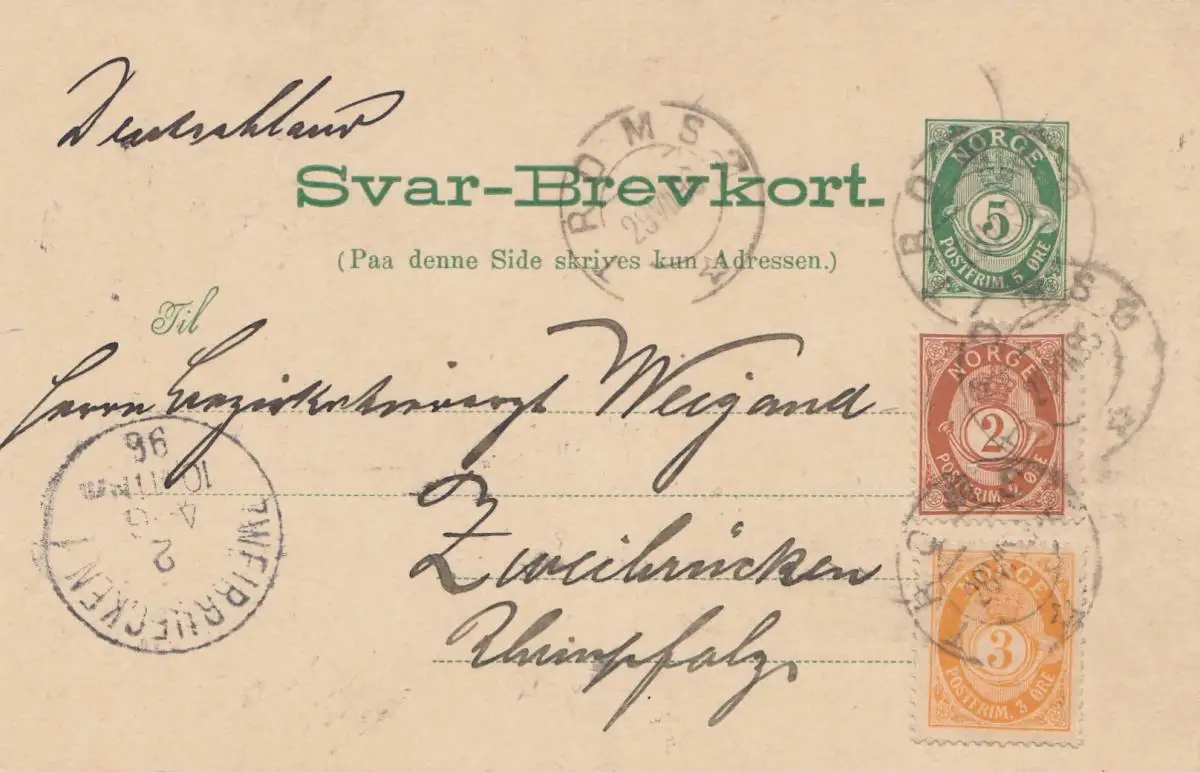 Deutschland
Svar-Brevkort.
(Paa denne Side skrives kun Adressen.)
Til
Herrn Bezirkstierarzt Weigand
Zweibrücken
Rheinpfalz
NORGE
5
POSTFRIM. 5 ØRE
NORGE
2
POSTFRIM. 2 ØRE
NORGE
3
POSTFRIM. 3 ØRE
TROMSØ
TROMSØ
TROMSØ
TROMSØ
ZWEIBRUECKEN I
2
AUG
96